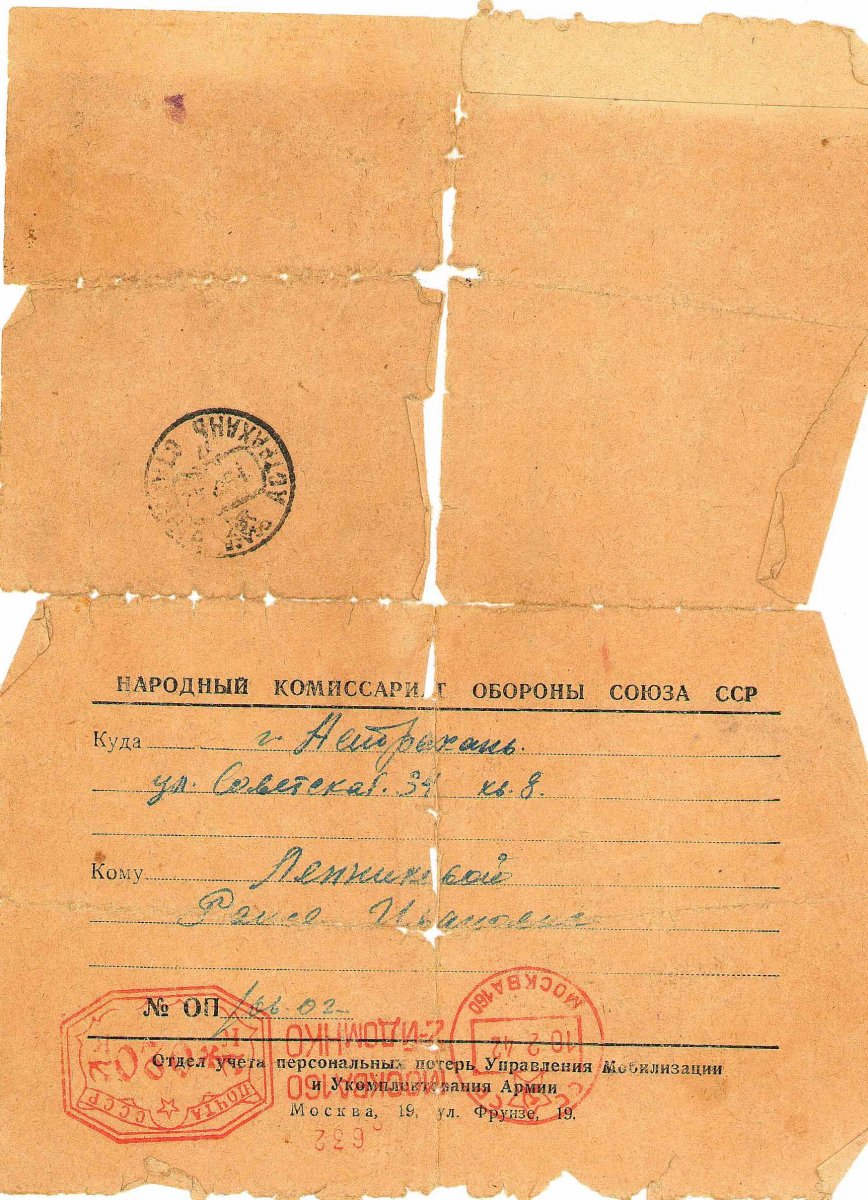 АСТРАХАНЬ
НАРОДНЫЙ КОМИССАРИАТ ОБОРОНЫ СОЮЗА ССР
Куда г. Астрахань.
ул. Советская. 34 кв. 8.
Кому Ленниковой
Раисе Ивановне
№ ОП
Отдел учета персональных потерь Управления Мобилизации
и Укомплектования Армии
Москва, 19, ул. Фрунзе, 19.
ПОЧТА СССР
2-Й ДОМ НКО
МОСКВА 160
632
МОСКВА 160
16 2 42
СССР